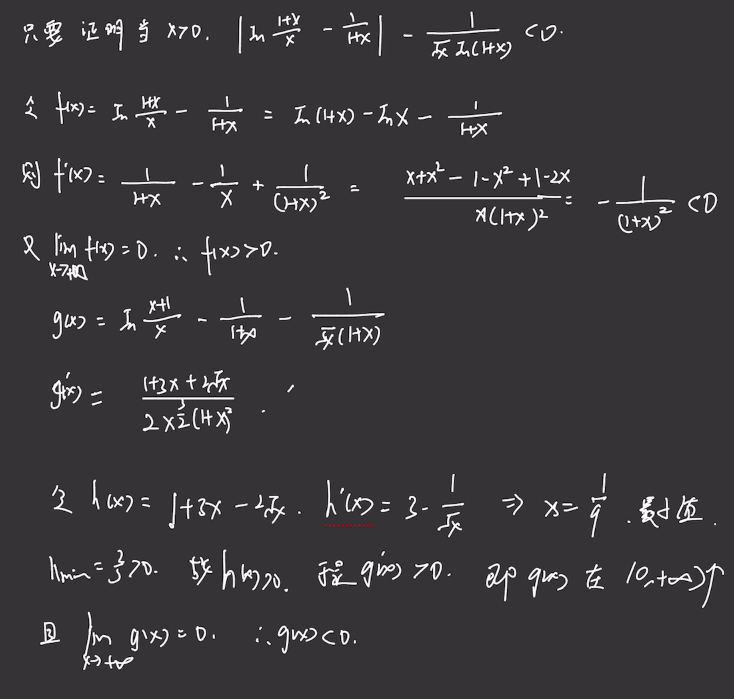 只要证明当 x>0. |ln (1+x)/x − 1/(1+x)| − 1/(√x ln(1+x)) <0.
令 f(x)= ln (1+x)/x − 1/(1+x) = ln(1+x)−lnx − 1/(1+x)
则 f'(x)= 1/(1+x) − 1/x + 1/(1+x)² = (x+x²−1−x²+1−2x)/(x(1+x)²) = − 1/(1+x)² <0
又 lim x→+∞ f(x)=0. ∴ f(x)>0.
g(x)= ln (x+1)/x − 1/(1+x) − 1/(√x(1+x))
g'(x)= (1+3x+2√x)/(2x^(3/2)(1+x)²).
令 h(x)= 1+3x−2√x. h'(x)= 3− 1/√x ⇒ x= 1/9.
hmin= 2/3>0. 故 h(x)>0. g'(x)>0. 即 g(x) 在 (0,+∞)↑
且 lim x→+∞ g(x)=0. ∴g(x)<0.